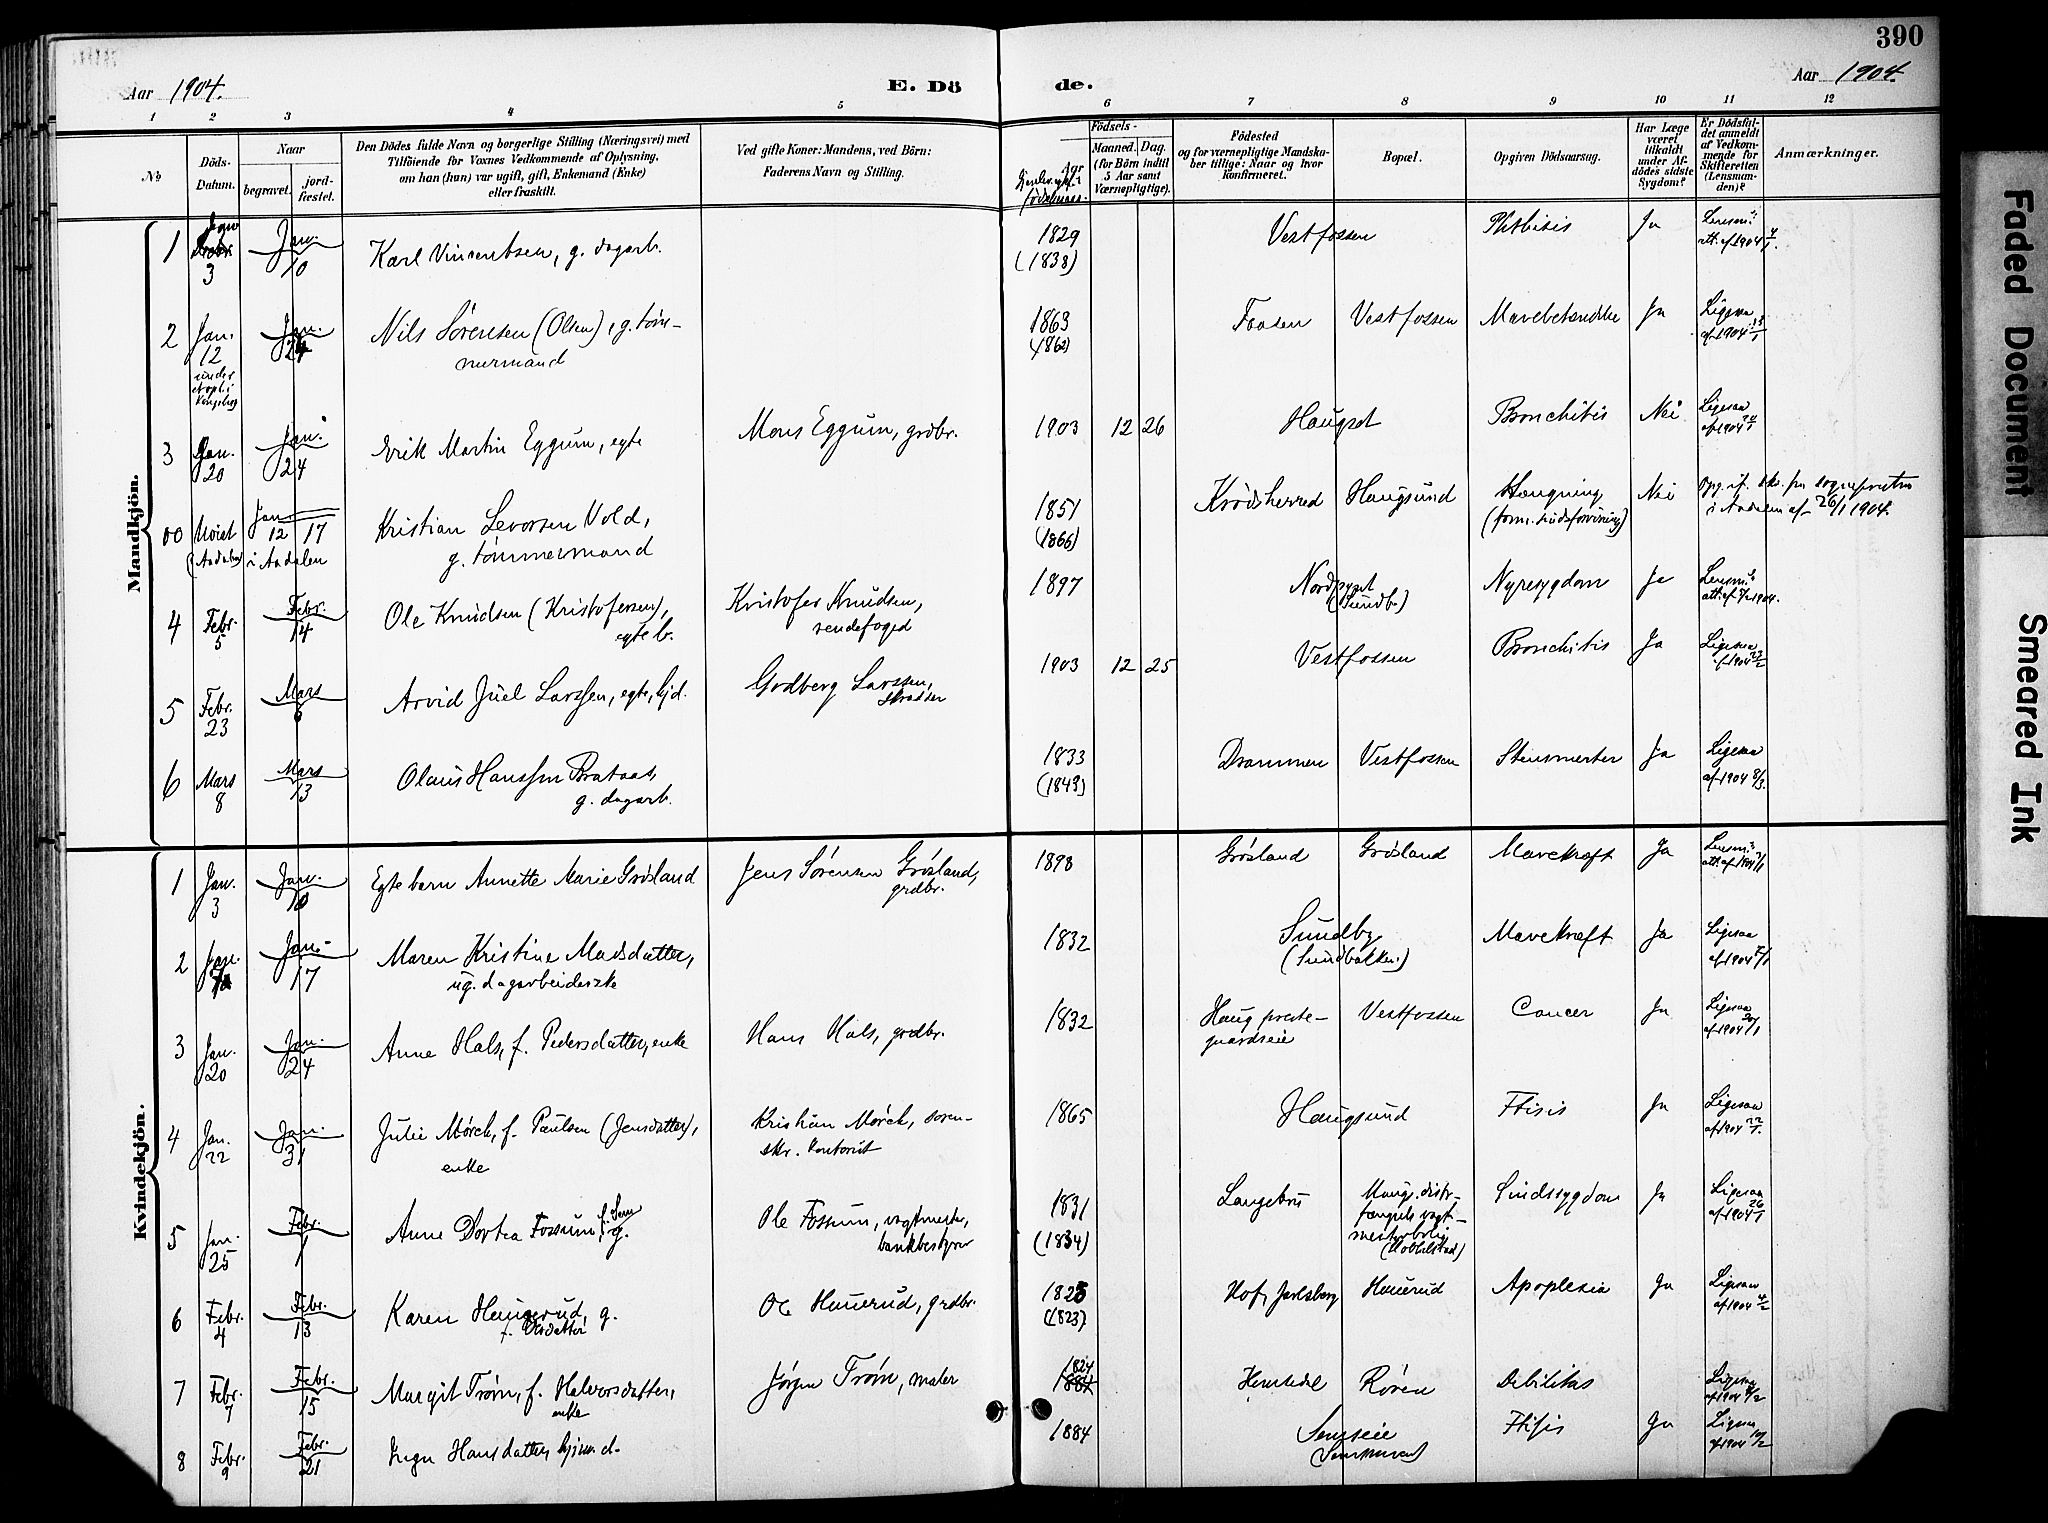 390
Aar 1904.
E. Dö
de.
Aar 1904.
1 2 3 4 5 6 7 8 9 10 11 12
No
Döds-Datum.
Naar
begravet.
jord-fæstet.
Den Dödes fulde Navn og borgerlige Stilling (Næringsvei) med
Tilföiende for Voxnes Vedkommende af Oplysning,
om han (hun) var ugift, gift, Enkemand (Enke)
eller fraskilt.
Ved gifte Koner: Mandens, ved Börn:
Faderens Navn og Stilling.
Aar
Födsels-
Maaned. Dag.
(for Börn indtil
5 Aar samt
Værnepligtige).
Födested
og for værnepligtige Mandska-
ber tillige: Naar og hvor
konfirmeret.
Bopæl.
Opgiven Dödsaarsag.
Har Læge
været
tilkaldt
under Af-
dödes sidste
Sygdom?
Er Dödsfal-
det anmeldt
af Vedkom-
mende for
Skifteretten
(Lensman-
den)?
Anmærkninger.
Mandkjön.
1 3 Jan. 10 Karl Vincentsen, g. dagarb. 1829 (1838) Vestfossen Phthisis Ja Lensm. att. af 1904 4/1.
2 Jan. 12 Jan. 24 Nils Sørensen (Olsen), g. tøm-
mermand 1863 (1862) Faasen Vestfossen Mavebetændelse Ja Ligesaa af 1904
3 Jan. 20 Jan. 24 Erik Martin Eggum, egte Mons Eggum, grdbr. 1903 12 26 Haugset Bronchitis Nei Ligesaa af 1904
00 Jan. 12 17 i Aadalen Kristian Levorsen Vold,
g. tømmermand 1851 (1866) Krødsherred Haugsund Hængning Nei sogneprsten i Aadalen af 26/1 1904.
4 Febr. 5 Febr. 14 Ole Knudsen (Kristofersen),
egte b. Kristofer Knudsen,
rendefoged 1897 (Sundb.) Nyresygdom Ja Lensm. att. af 1904.
5 Febr. 23 Mars 6 Arvid Juel Larssen, egte, hjd. Godberg Larssen,
skrædder 1903 12 25 Vestfossen Bronchitis Ja Ligesaa af 1904 23/2
6 Mars 8 Mars 13 Olaus Hanssen Brataas,
g. dagarb. 1833 (1843) Drammen Vestfossen Stensmerter Ja Ligesaa af 1904 8/3.
Kvindekjön.
1 Jan. 3 Jan. 10 Egtebarn Annette Marie Grøsland Jens Sørensen Grøsland,
grdbr. 1898 Grøsland Grøsland Mavekræft Ja Lensm. att. af 1904
2 Jan. Jan. 17 Maren Kristine Madsdatter,
ug. dagarbeiderske 1832 Sundby (Sundbakken) Mavekræft Ja Ligesaa af 1904
3 Jan. 20 Jan. 24 Anne Hals, f. Pedersdatter, enke Hans Hals, grdbr. 1832 Haug preste-
gaardseie Vestfossen Cancer Ja Ligesaa af 1904
4 Jan. 22 Jan. 31 Julie Mørch, f. Paulsen (Jensdatter),
enke Kristian Mørch, soren-
skr. kontorist 1865 Haugsund Ftisis Ja Ligesaa af 1904 22/1.
5 Jan. 25 Febr. 1 Anne Dortea Fossum f. Sem g. Ole Fossum, vagtmester,
bankbestyrer 1831 (1834) Langebru Haugs. distr.
fængsels vagt-
mesterbolig
(Hobbelstad) Sindssygdom Ja Ligesaa af 1904 26/1
6 Febr. 4 Febr. 13 Karen Hauerud, g.
f. Olsdatter Ole Hauerud, grdbr. 1825 (1823) Hof, Jarlsberg Hauerud Apoplexia Ja Ligesaa af 1904 4/2
7 Febr. 7 Febr. 15 Margit Trøm, f. Halvorsdatter,
enke Jørgen Trøm, maler 1824 Hemsedal Røren Debilitas Ligesaa af 1904
8 Febr. 9 Febr. 21 Inga Hansdatter, hjemmed. 1884 Semseie Ftisis Ja Ligesaa af 1904 10/2
Faded Document
Smeared Ink